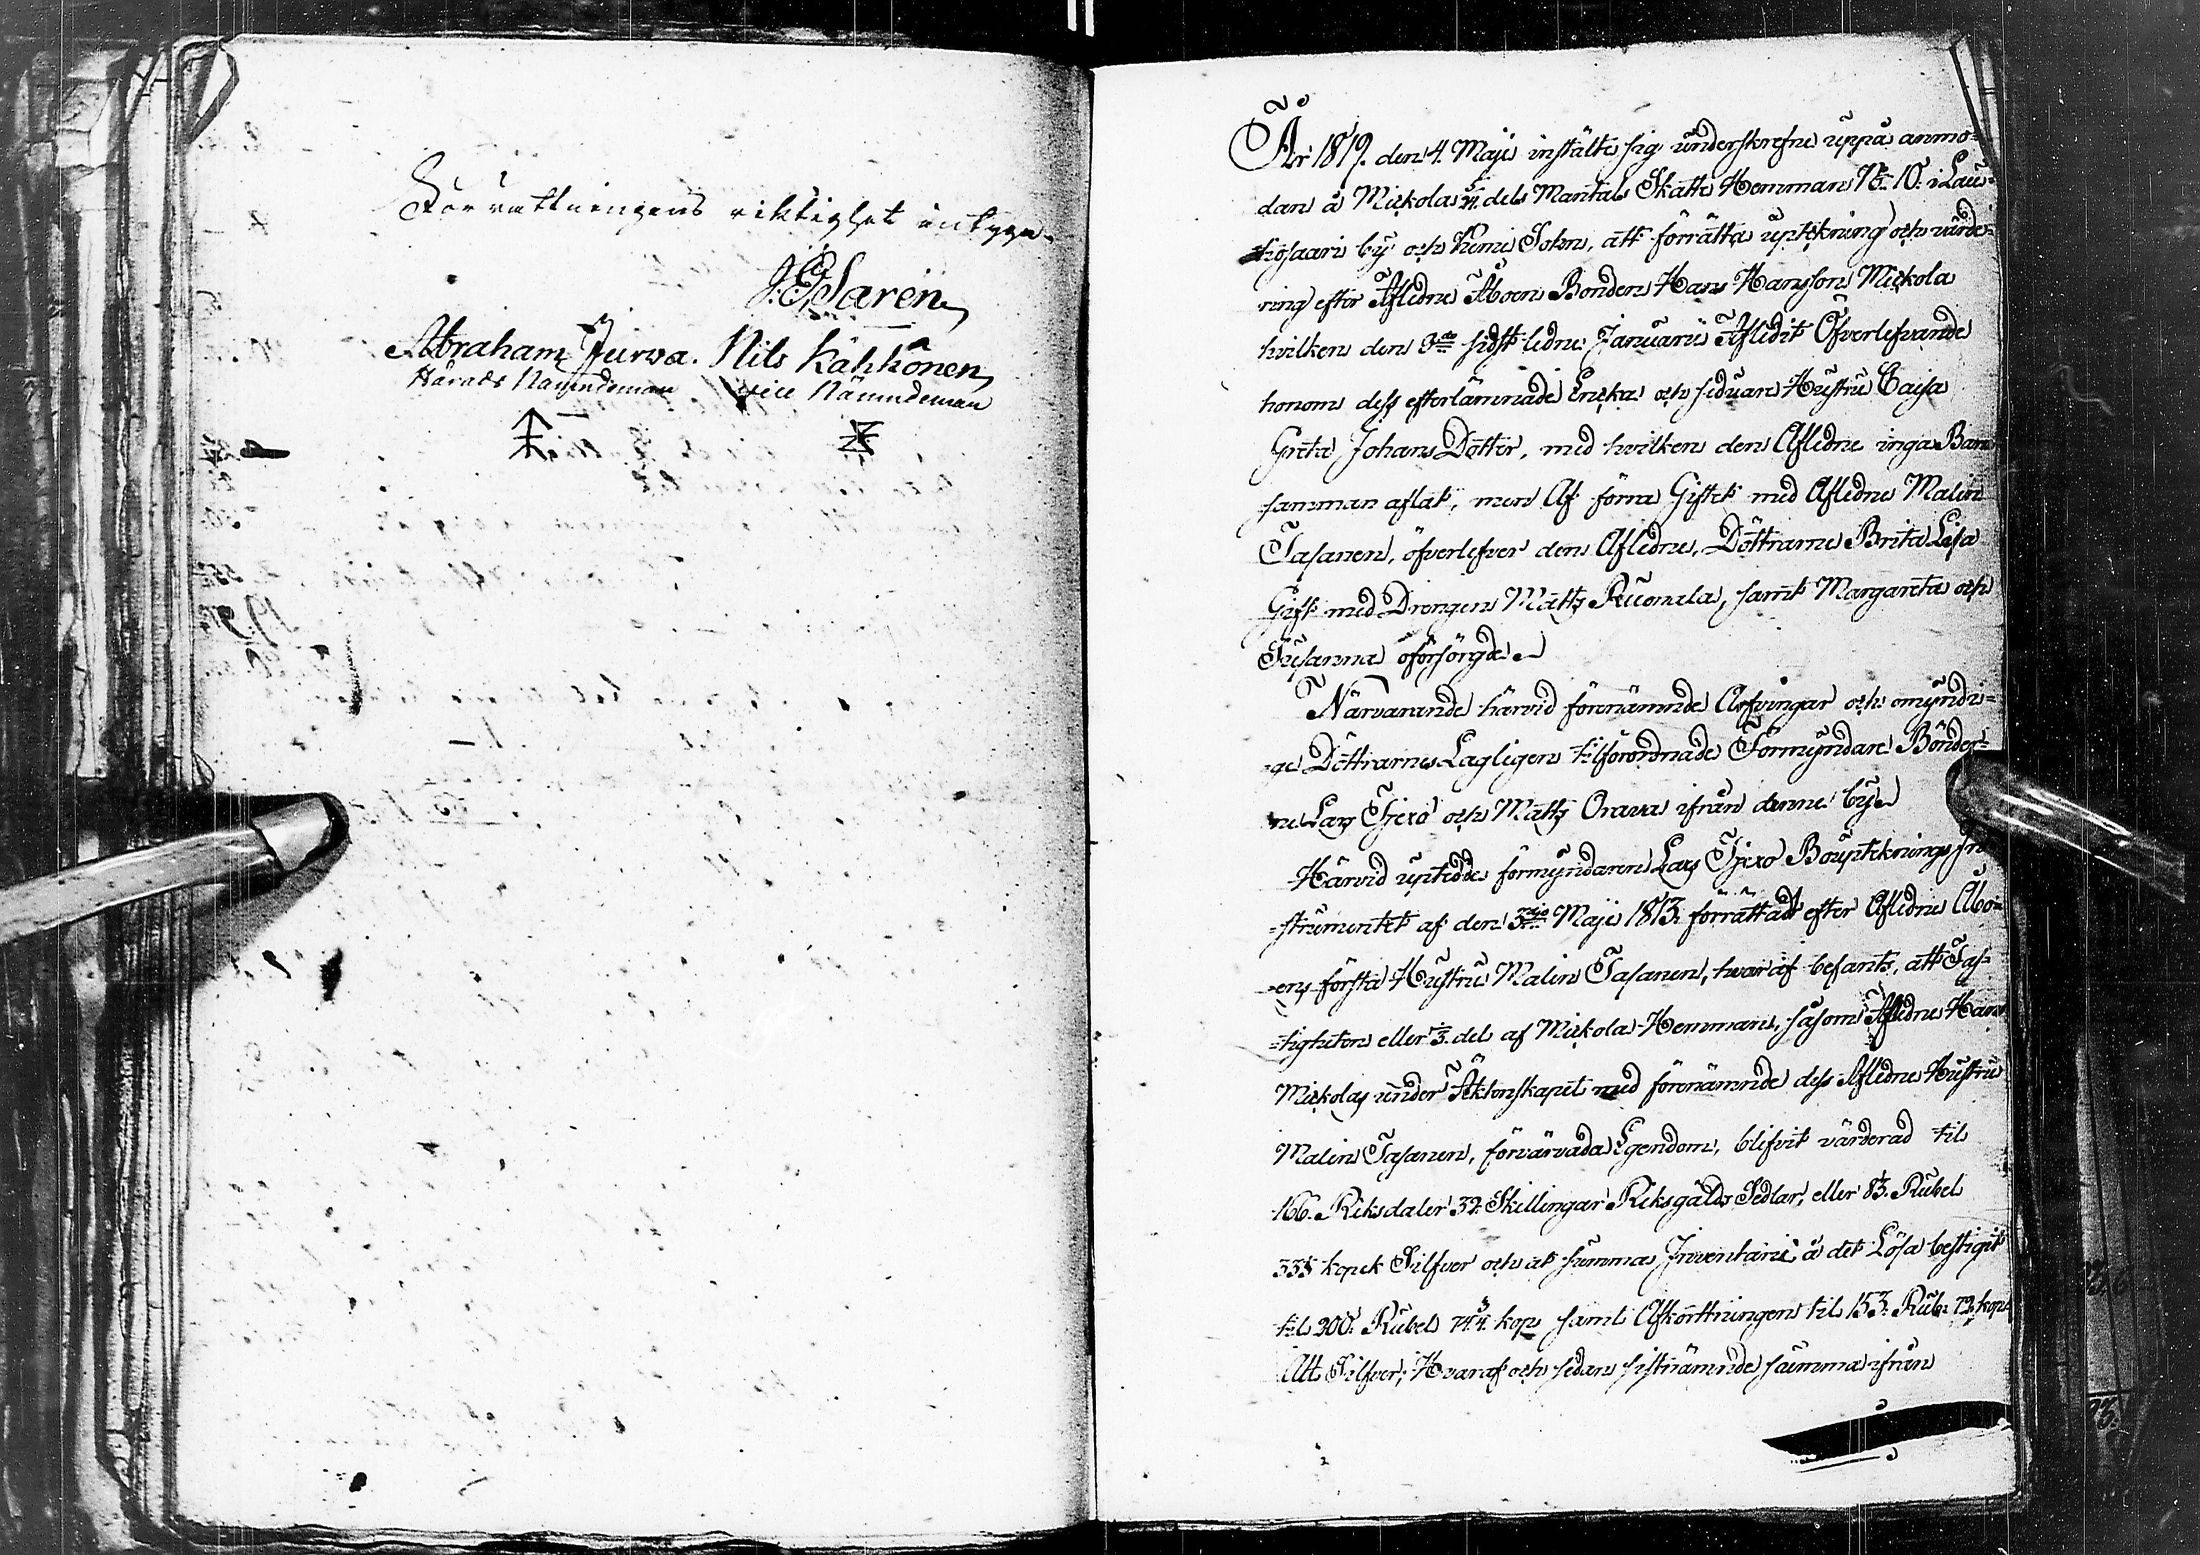 Förrättningens riktighet intyga.
J: E: Saren
Abraham Jurva. Nils Kähkönen
Härads Nämndeman vice Nämndeman
År 1819. den 4. Maji instälte sig underskrefne uppå anmo=
dan å Mickola dels Mantals Skatte Hemman No. 10. i Lau=
=kosaari by och Kemi Sokn, att förrätta uptekning och värde=
ring efter Afledne Åboen Bonden Hans Hansson Mickola
hvilken den sidst ledne Januarii Afledit Öfverlefvande
honom dess efterlämnade Encka och seduare Hustru Caisa
Greta Johans Dotter, med hvilken den Afledne inga Barn
samman aflat, men Af förra Giftet med Afledne Malin
Tasanen, öfverlefver den Afledne, Döttrarne Brita Lisa
Gift med Drengen Matts Ruonala, samt Margareta och
Susanna oförsörgde.
Närvarande härvid förenämnde Arfvingar och omyndi=
=ge Döttrarnes Lagligen tilförordnade Förmyndare Bönder=
ne Lars och Matts Orava ifrån denne by.
Härvid uptedde förmyndaren Lars Bouptecknings In=
=strumentet af den 3dje Maji 1813. förrättadt efter Afledne Åbo=
=ens första Hustru Malin Tasanen, hvaraf befants, att Fas=
=tigheten eller del af Mickola Hemman, såsom Afledne Hans
Mickolas under Äktenskapet med förenämnde dess Afledne Hustru
Malin Tasanen, förvärvada Egendom, blifvit värderad til
166. Riksdaler 32. Skillingar Riksgälds Sedlar, eller 83. Rubel
33⅓ kopek Silfver och at summa Inventarii å det Lösa bestigit
til 200. Rubel kop samt Afkorttningen til 153. Rub: 72. kop:
Alt Silfver; Hvaraf och sedan sistnämnde summa ifrån